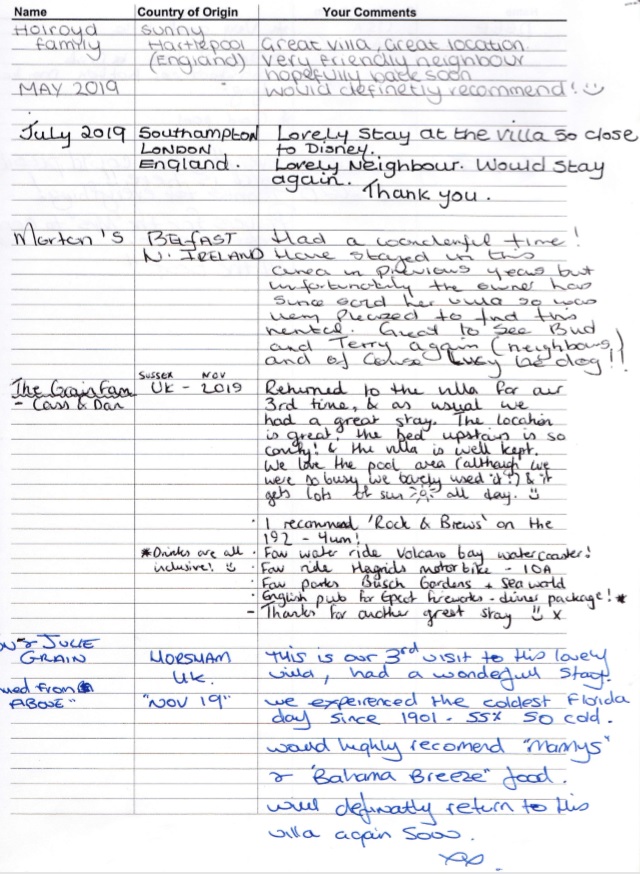 Name Country of Origin Your Comments
Holroyd Sunny
family Hartlepool Great villa, Great location
(England) very friendly neighbour
hopefully back soon
MAY 2019 would definetly recommend! ☺
July 2019 Southampton Lovely Stay at the villa so close
LONDON to Disney.
England. Lovely Neighbour. Would Stay
again.
Thank you.
Morton's BELFAST Had a wonderful time!
N. IRELAND Have stayed in this
area in previous years but
unfortunately the owner has
since sold her villa so was
very pleased to find this
rental. Great to see Bud
and Terry again (neighbours)
and of course Lucy the dog!!
SUSSEX NOV
The Grain Fam UK - 2019 Returned to the villa for our
- Cass & Dan 3rd time, & as usual we
had a great stay. The location
is great, the bed upstairs is so
comfy! & the villa is well kept.
We love the pool area (although we
were so busy we barely used it!) & it
gets lots of sun all day. ☺
· I recommend 'Rock & Brews' on the
192 - Yum!
*Drinks are all · Fav water ride Volcano bay watercoaster!
inclusive! ☺ · Fav ride Hagrids motorbike - IOA
· Fav parks Busch Gardens + Sea world
· English pub for Epcot fireworks - dinner package! *
- Thanks for another great stay ☺ x
& JULIE
GRAIN HORSHAM This is our 3rd visit to this lovely
UK. villa, had a wonderfull stay.
from
ABOVE" "NOV 19" we experienced the coldest Florida
day since 1901 - 55% So cold.
would highly recomend
& "Bahama Breeze" food.
will definatly return to this
villa again Soon.
xx.